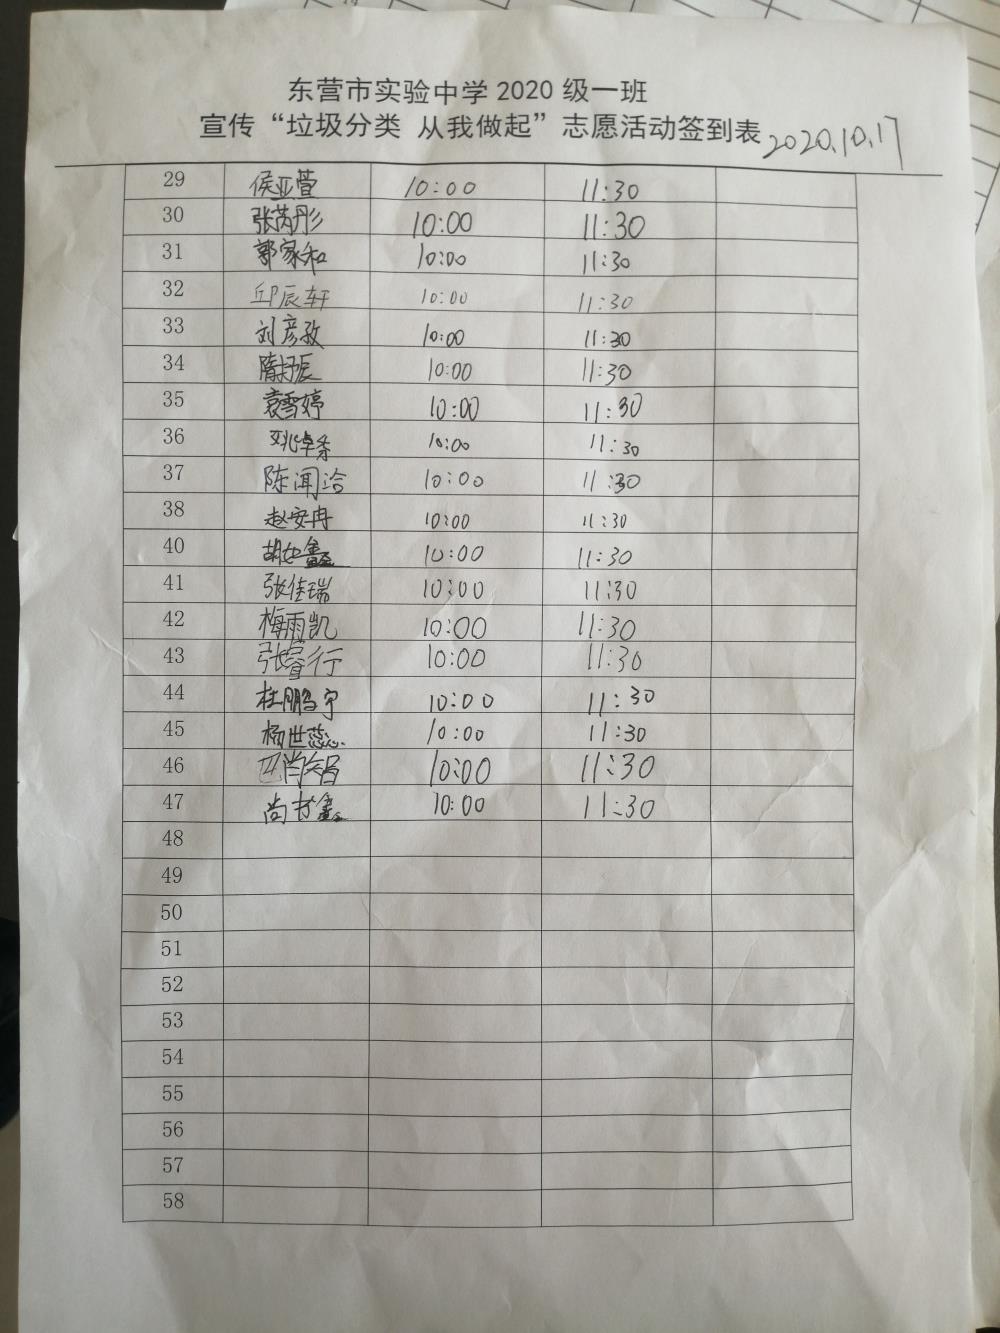 东营市实验中学2020级一班
宣传“垃圾分类 从我做起”志愿活动签到表 2020.10.17
29 侯亚萱 10:00 11:30
30 张芮彤 10:00 11:30
31 郭家和 10:00 11:30
32 邱辰轩 10:00 11:30
33 刘彦孜 10:00 11:30
34 隋抒辰 10:00 11:30
35 袁雪婷 10:00 11:30
36 10:00 11:30
37 陈闻洽 10:00 11:30
38 赵安冉 10:00 11:30
40 胡如鑫 10:00 11:30
41 张佳瑞 10:00 11:30
42 梅雨凯 10:00 11:30
43 张睿行 10:00 11:30
44 杜鹏宇 10:00 11:30
45 杨世蕊 10:00 11:30
46 10:00 11:30
47 尚书鑫 10:00 11:30
48
49
50
51
52
53
54
55
56
57
58